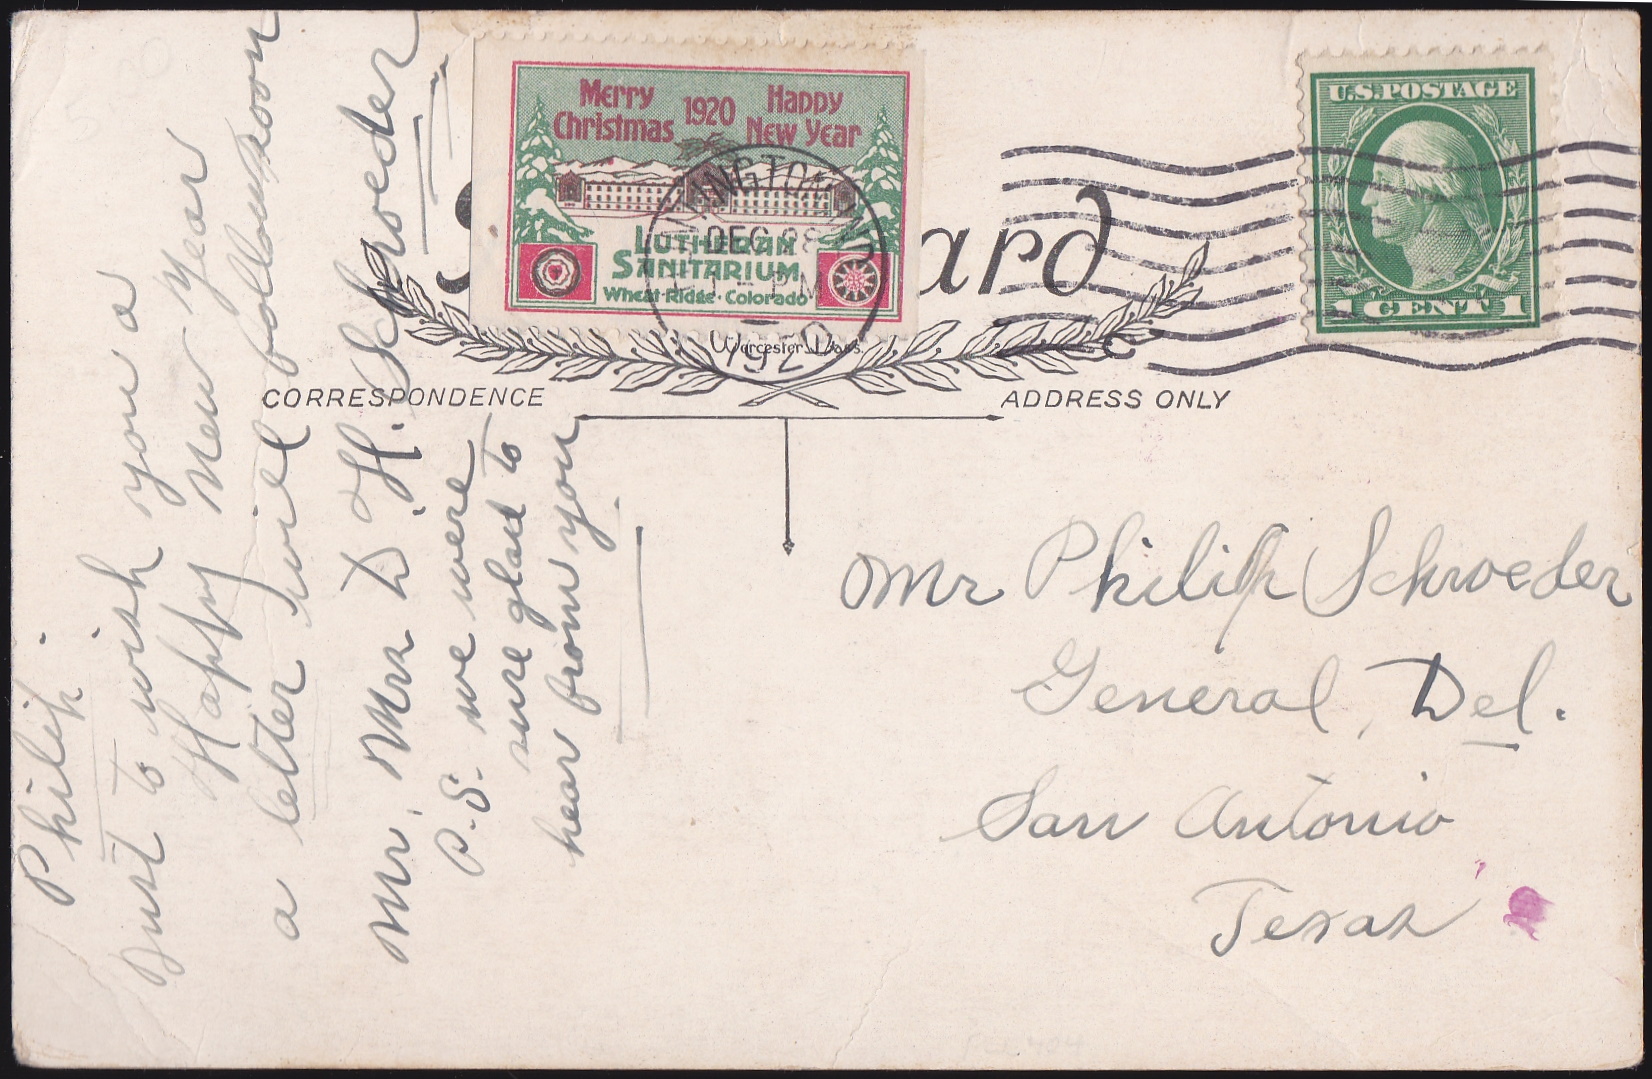 Merry Christmas 1920 Happy New Year
LUTHERAN
SANITARIUM
Wheat Ridge · Colorado
DEC 28
PM
1920
U.S. POSTAGE
1 CENT 1
ard
Worcester, Mass.
CORRESPONDENCE
ADDRESS ONLY
Philip.
Just to wish you a
Happy New Year
a letter will follow soon
Mr. Mrs D. H. Schroeder
P.S. we were
sure glad to
hear from you
Mr Philip Schroeder
General Del.
San Antonio
Texas